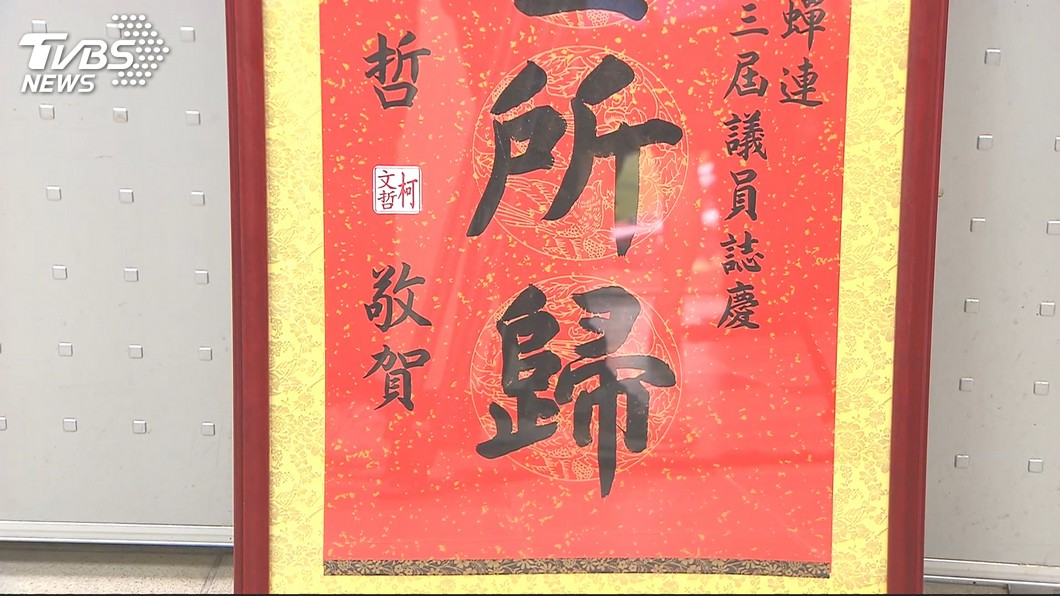 TVBS
NEWS
蟬連
三屆議員誌慶
所歸
哲
柯文哲
敬賀